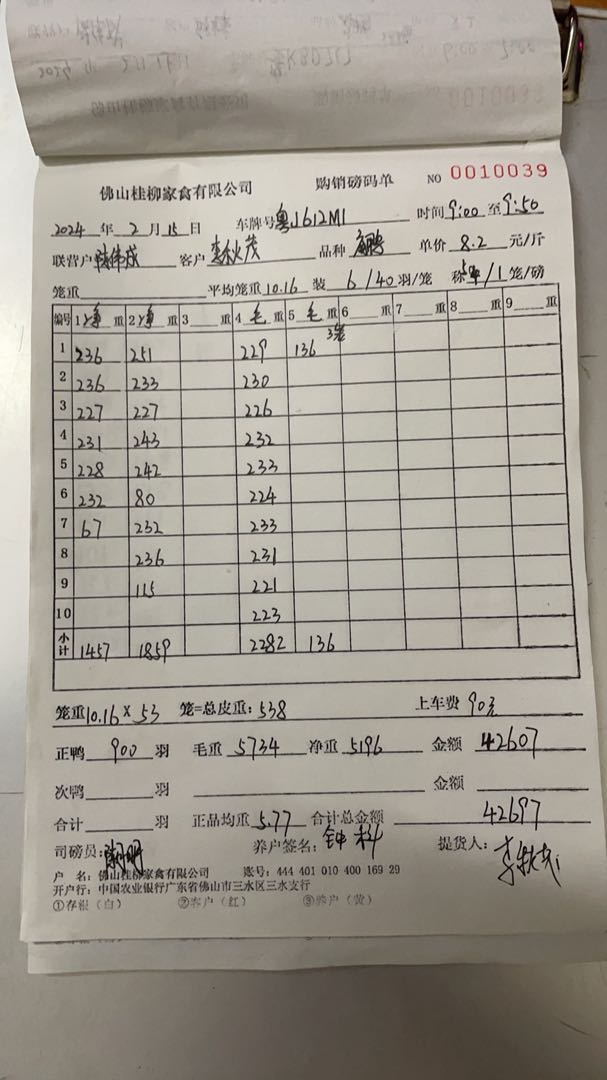 0010038
佛山桂柳家禽有限公司 购销磅码单 NO 0010039
2024 年 2 月 15 日 车牌号 粤J612M1 时间 9:00 至 9:50
联营户 客户 李秋茂 品种 单价 8.2 元/斤
笼重 平均笼重 10.16 装 6/40 羽/笼 称 /1 笼/磅
编号 1 净 重 2 净 重 3 重 4 毛 重 5 毛 重 6 重 7 重 8 重 9 重
1 236 251 229 136 3笼
2 236 233 230
3 227 227 226
4 231 243 232
5 228 242 233
6 232 80 224
7 67 232 233
8 236 231
9 115 221
10 223
小计 1457 1859 2282 136
笼重 10.16 × 53 笼=总皮重: 538 上车费 90元
正鸭 900 羽 毛重 5734 净重 5196 金额 42607
次鸭 羽 金额
合计 羽 正品均重 5.77 合计总金额 42697
司磅员: 养户签名: 钟 提货人: 李秋茂
户 名: 佛山桂柳家禽有限公司 账号: 444 401 010 400 169 29
开户行: 中国农业银行广东省佛山市三水区三水支行
①存根（白） ②客户（红） ③养户（黄）